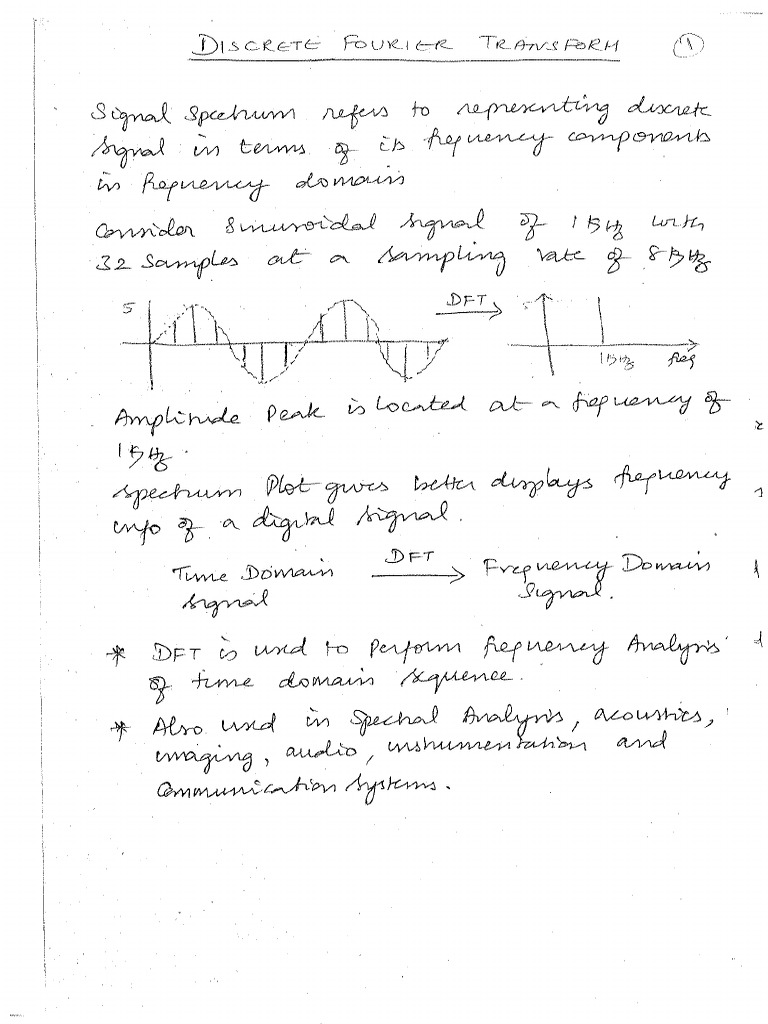 DISCRETE FOURIER TRANSFORM 1
Signal Spectrum refers to representing discrete
signal in terms of its frequency components
in frequency domain
Consider Sinusoidal signal of 1 KHz with
32 Samples at a sampling rate of 8 KHz
5 DFT
1 KHz freq
Amplitude Peak is located at a frequency of
1 KHz.
Spectrum Plot gives better displays frequency
info of a digital signal.
Time Domain DFT Frequency Domain
signal Signal.
* DFT is used to perform frequency Analysis
of time domain sequence.
* Also used in Spectral Analysis, acoustics,
imaging, audio, instrumentation and
Communication Systems.